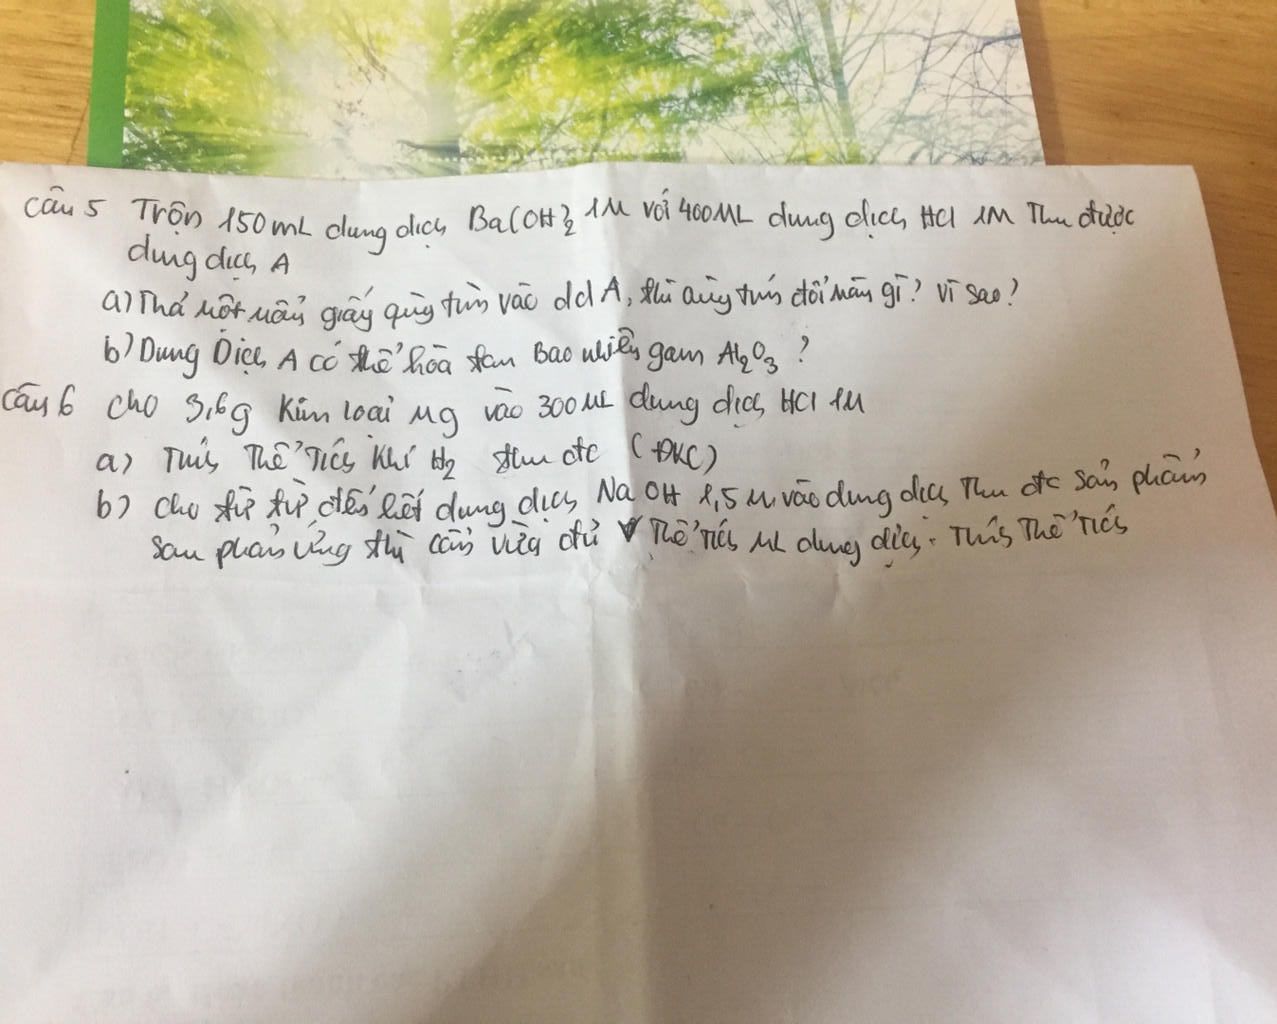 Câu 5 Trộn 150mL dung dịch Ba(OH)₂ 1M với 400ML dung dịch HCl 1M Thu được
dung dịch A
a) Thả một mẩu giấy quỳ tím vào ddA, thì quỳ tím đổi màu gì? Vì sao?
b) Dung Dịch A có thể hòa tan Bao nhiêu gam Al₂O₃?
Câu 6 Cho 3,6g Kim loại Mg vào 300ML dung dịch HCl 1M
a) Tính Thể Tích Khí H₂ thu đc (ĐKC)
b) Cho từ từ đến hết dung dịch NaOH 1,5M vào dung dịch Thu đc sản phẩm
sau phản ứng thì cần vừa đủ V Thể Tích ML dung dịch. Tính Thể Tích